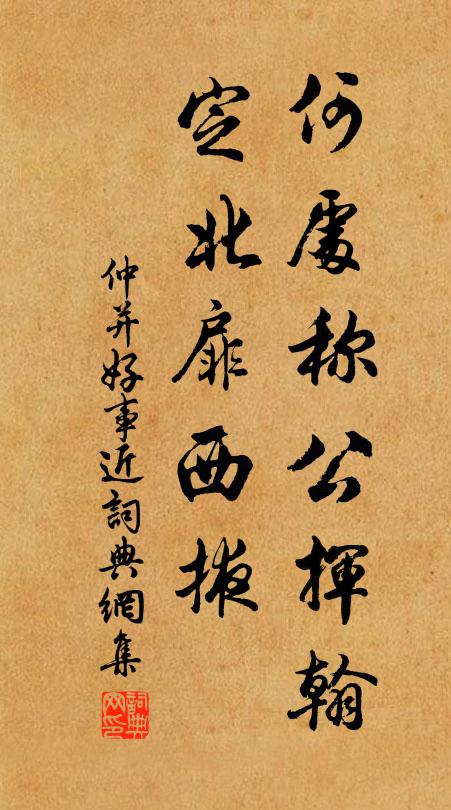 何處称公揮翰
定北扉西掖
仲并好事近詞典網集
詞典网印